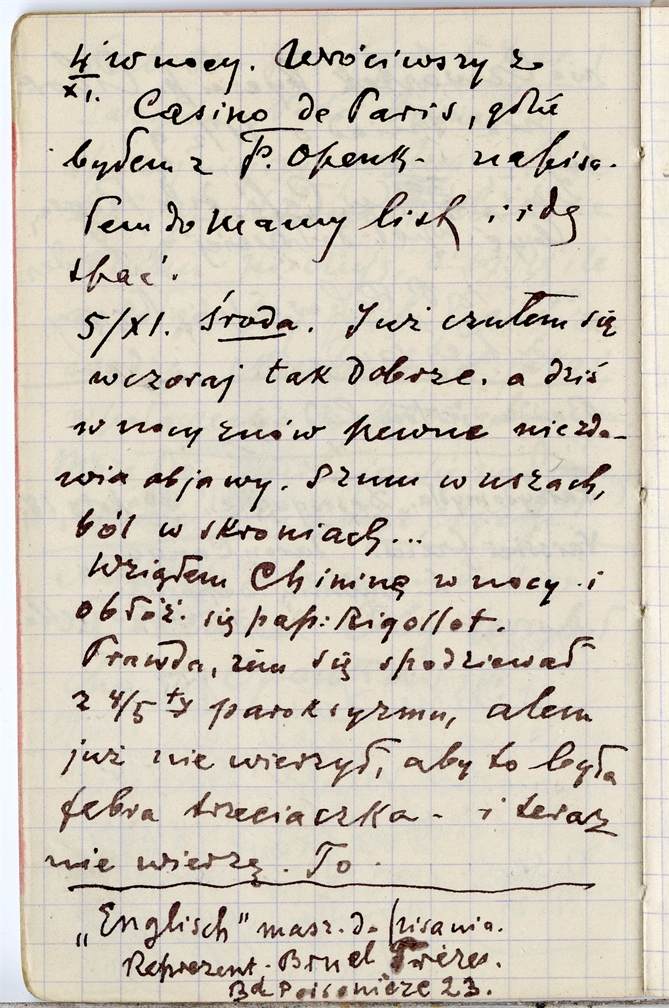 4/XI. w nocy. Wróciwszy z
Casino de Paris, gdzie
byłem z P. Openk- napisa-
łem do Mamy list i idę
spać.
5/XI. Środa. Już czułem się
wczoraj tak dobrze. a dziś
w nocy znów pewne niezdro-
wia objawy. Szum w uszach,
ból w skroniach...
Wziąłem Chininę w nocy i
obłoż. się pap: Rigollot.
Prawda, żem się spodziewał
z 4/5 ty paroksyzmu, alem
już nie wierzył, aby to była
febra trzeciaczka - i teraz
nie wierzę. To
"Englisch" masz. do pisania.
Reprezent. Bruel Frères.
Bd Poissonière 23.